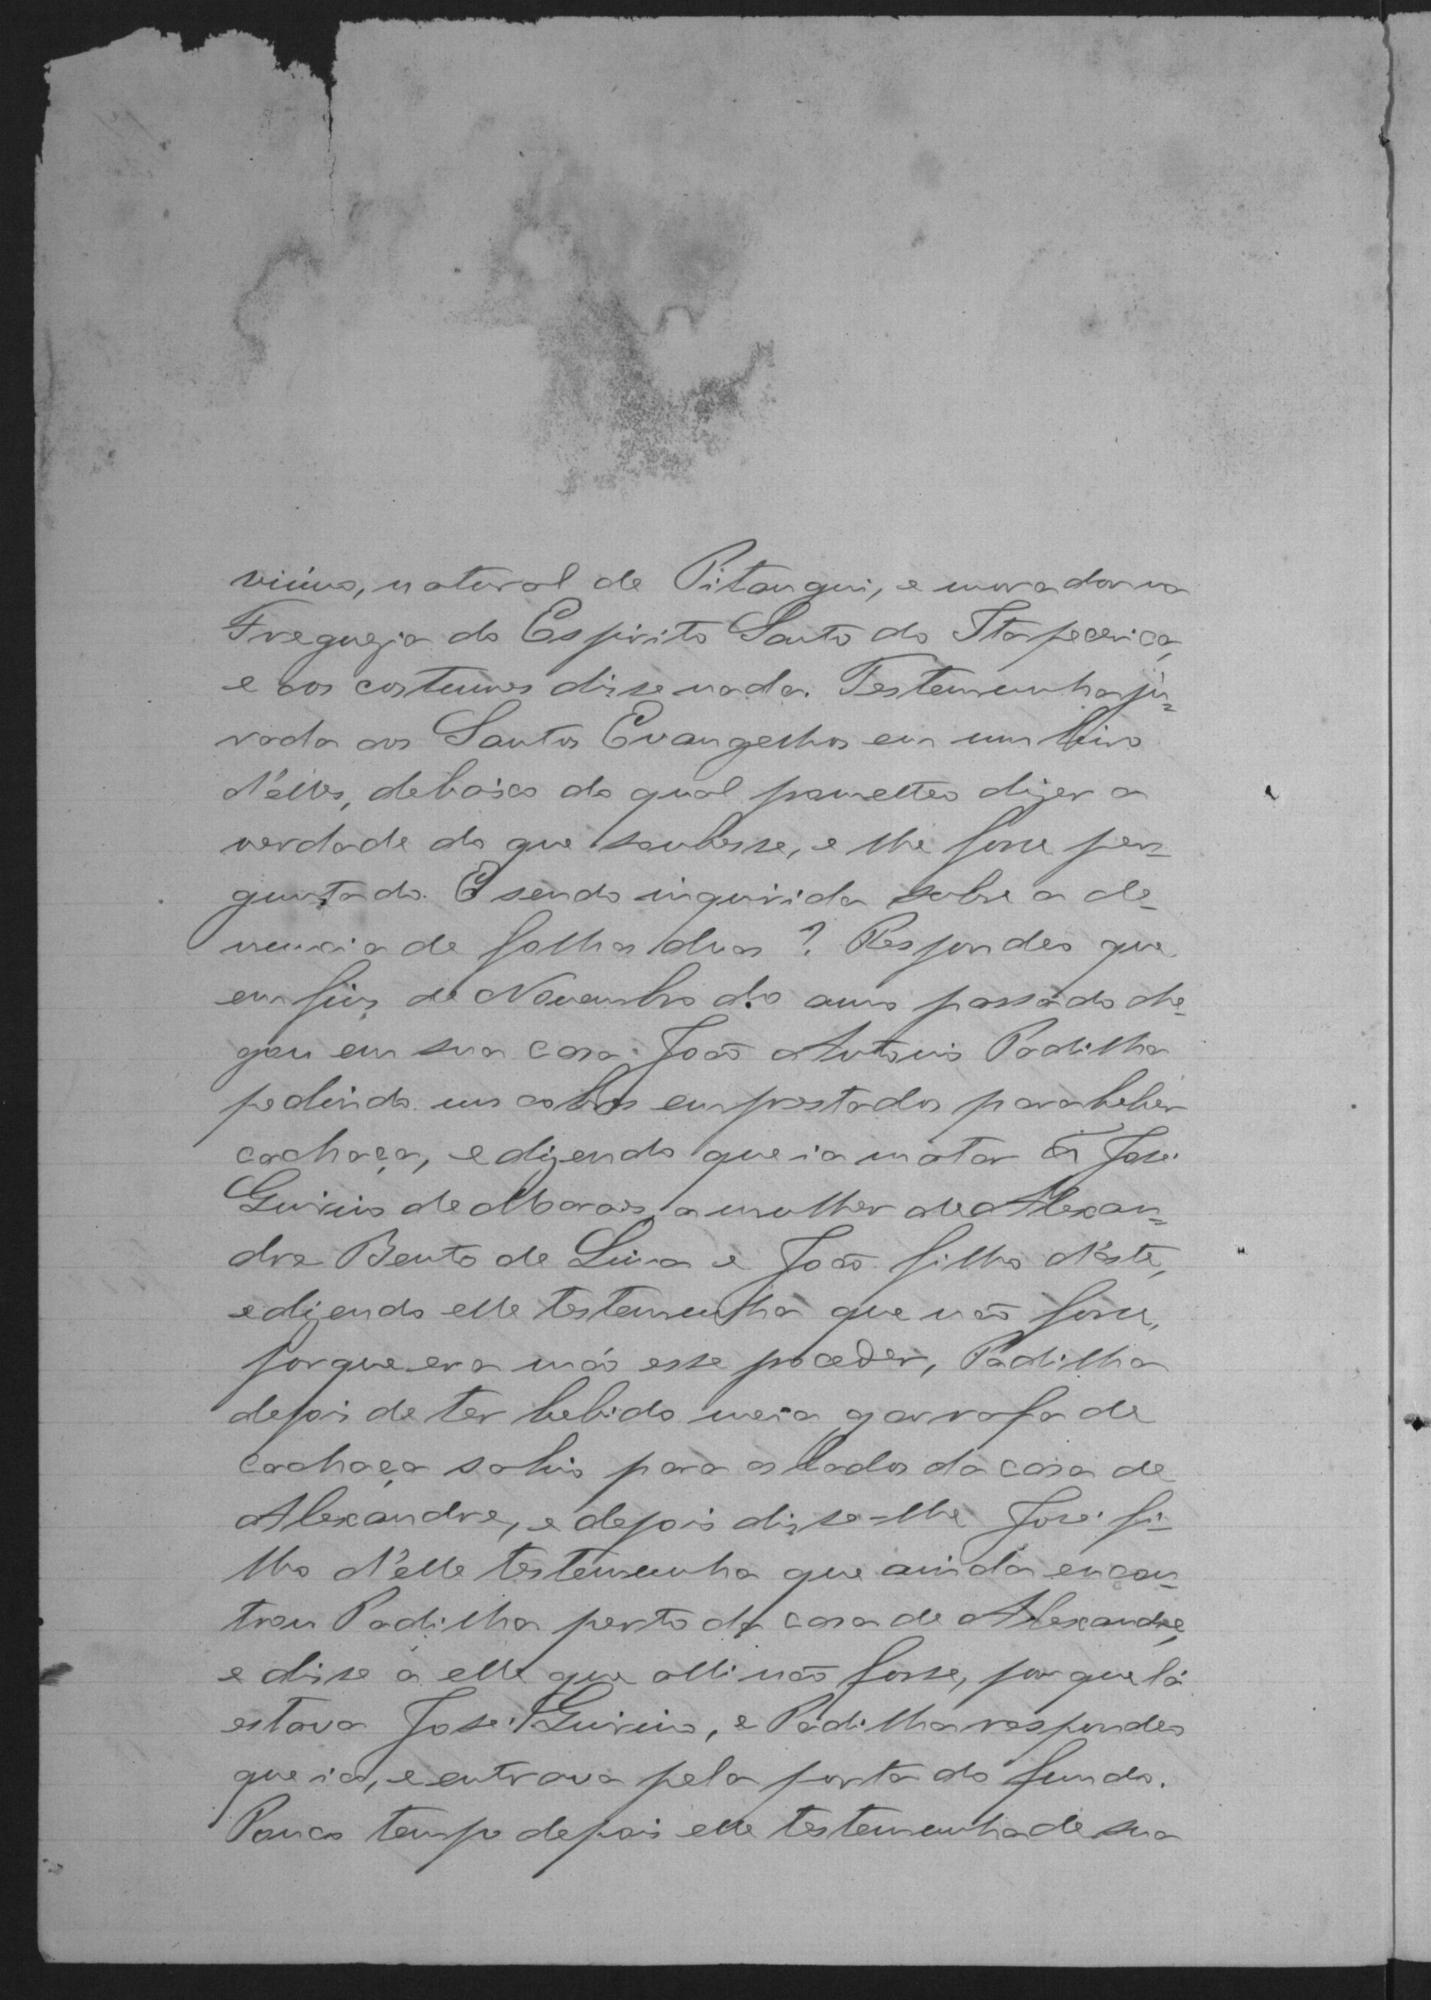 natural de Pitangui, e morador na
Fregueja do Espirito Santo do Itapecerica,
e aos costumes disse nada. Testemunha ju-
rada aos Santos Evangelhos em um livro
d'elles, debaixo do qual prometteo dizer a
verdade do que soubesse, e lhe fosse per-
guntado. E sendo inquirida sobre a de-
nuncia de folhas duas? Respondeo que
em fins de Novembro do anno passado che-
gou em sua casa João Antonio Padilha
pedindo uns cobres emprestados para beber
cachaça, e dizendo que ia matar á José
Quirino de Moraes, a mulher de Alexan-
dre Bento de Lima e João filho d'este,
e dizendo elle testemunha que não fosse,
porque era máo esse proceder, Padilha
depois de ter bebido meia garrafa de
cachaça sahio para os lados da casa de
Alexandre, e depois disse-lhe José fi-
lho d'elle testemunha que ainda encon-
trou Padilha perto da casa de Alexandre,
e disse á elle que alli não fosse, porque lá
estava José Quirino, e Padilha respondeo
que ia, e entrava pela porta do fundo.
Pouco tempo depois elle testemunha de sua